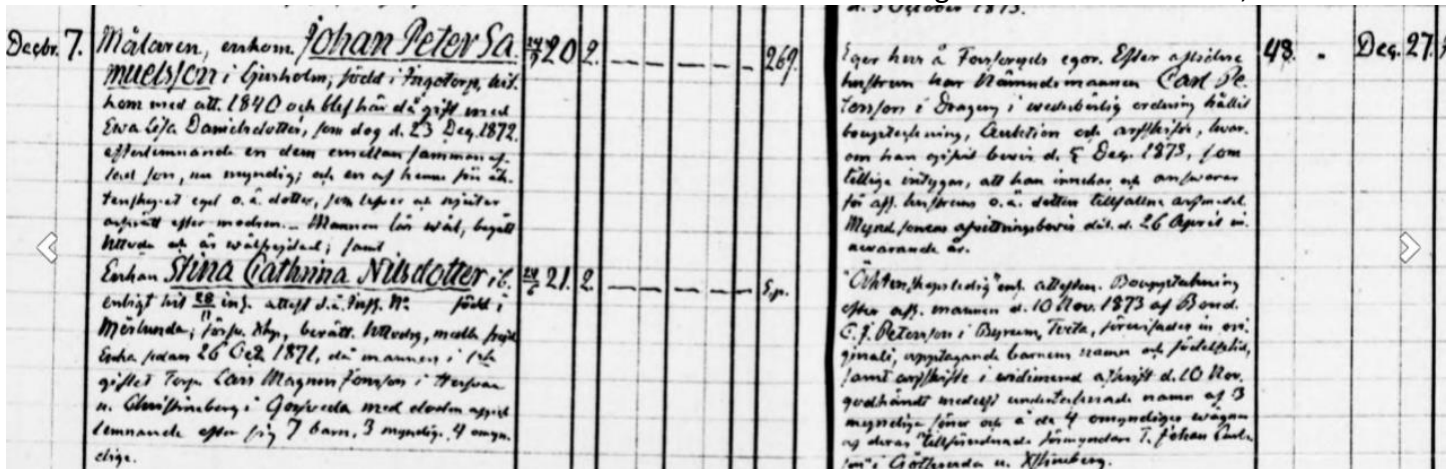 Decbr. 7. Målaren, enkom. Johan Peter Sa 20 2. 269.
muelsson i Gjusholm, född i Ingatorp, hit
kom med att. 1840 och blef här då gift med
Ewa Lisa Danielsdotter, som dog d. 23 Dec. 1872.
efterlemnande en dem emellan sammanaf-
lad son, nu myndig; och en af henne för äk-
tenskapet egd o.ä. dotter, som lefver och njuter
arfsrätt efter modren. Mannen läs wäl, begått
Nttvda och är wälfrejdad; samt
Enkan Stina Cathrina Nilsdotter 21. 2.
enligt hit attest född i
Mörlunda; berätt. Nttvdg, medb. frejd
Enka sedan 26 Oct. 1871, då mannen i
giftet Torp. Lars Magnus Jonsson i
u. Christineberg i med döden afgick
lemnande efter sig 7 barn, 3 myndiga, 4 omyn-
dige.
d. 5 October 1873.
Eger hus å egor. Efter aflidna 48. Dec. 27.
hustrun har Nämndemannen Carl Pe
tersson i i wederbörlig ordning hållit
bouptekning, Auktion och arfskifte, hwar-
om han gifvit bevis d. 5 Dec. 1873, som
tillige intygar, att han innehar och answarar
för afl. hustruns o.ä. dotter tillfallne arfsmedel.
Mynd. sonens afwittringsbevis dat. d. 26 April in-
newarande år.
"Äktenskapsledig" enl. attesten. Bouppteckning
efter afl. mannen d. 10 Nov. 1873 af Bond.
C. J. Petersson i Byrum, Tveta, förevisades in ori-
ginali, upptagande barnens namn och födelsetid,
samt arfskifte i widimerad afskrift d. 10 Nov.
godkändt medelst undertecknade namn af 3
myndige söner och å de 4 omyndiges wägnar
af deras tillförordnade förmyndare T. Johan
son i u.